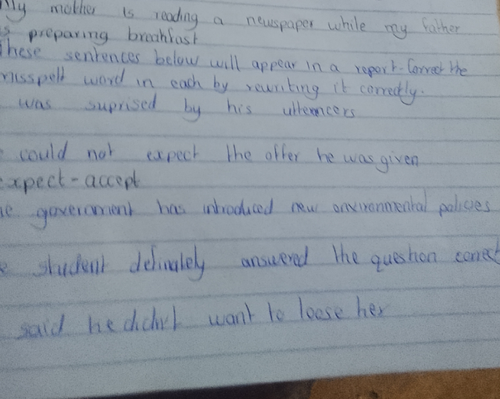 My mother is reading a newspaper while my father
is preparing breakfast
These sentences below will appear in a report. Correct the
misspelt word in each by rewriting it correctly.
was suprised by his utterancers
could not expect the offer he was given
expect - accept
he government has introduced new environmental policies
e student definately answered the question correct
said he didn't want to loose her